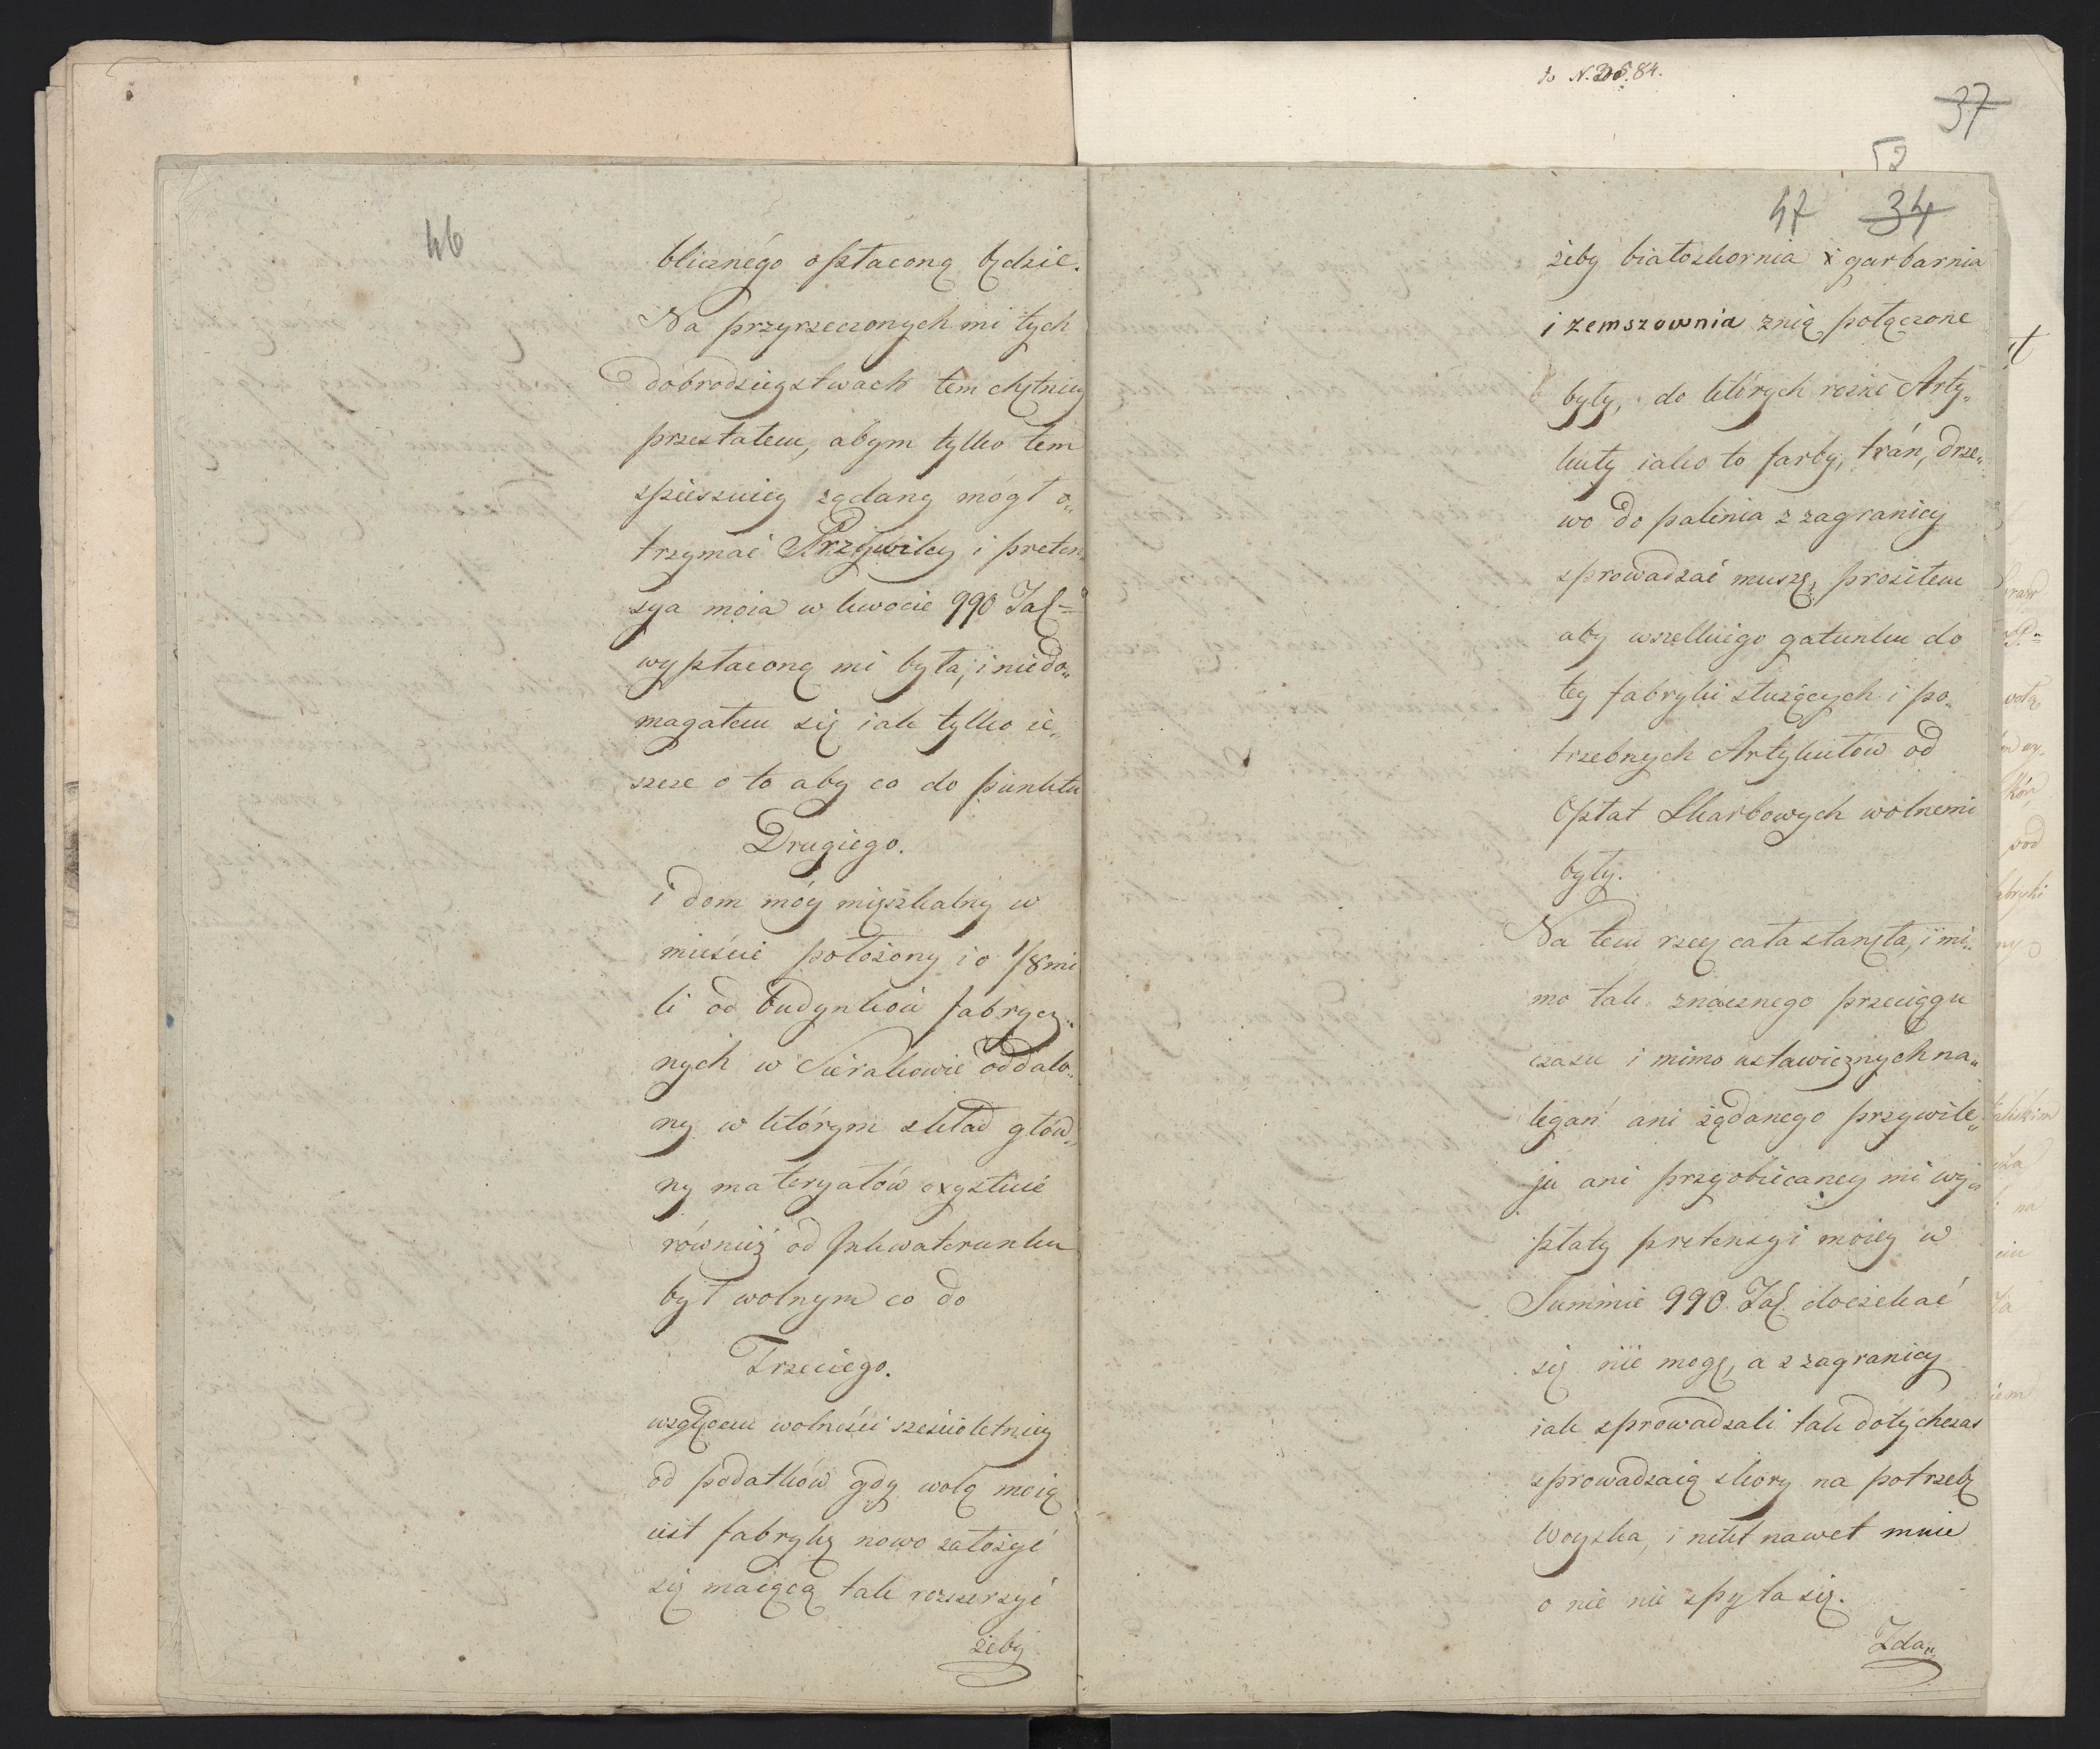 46
blicznégo opłaconą będzie.
Na przyrzeczonych mi tych
dobrodzieystwach tem chętniey
przestałem, abym tylko tem
spieszniey żądany mógł o„
trzymać Przywiley i preten„
sya moia w kwocie 990 Tal=
wypłaconą mi była, i niedo„
magałem się iak tylko ie„
szcze o to aby co do punktu
Drugiego.
i dom móy mięszkalny w
mieście położony i o 1/8 mi
li od budynków fabrycz„
nych w Sierakowie oddalo„
ny w którym skład głów„
ny materyałów exystuie
również od Inkwaterunku
był wolnym co do
Trzeciego.
względem wolności sześcioletniey
od podatków gdy wolą moią
iest fabrykę nowo założyć
się maiącą tak rozszerzyć
żeby
to N. 84.
37
52
47 34
żeby białoskornia i garbarnia
i zemszownia znią połączone
były, do których rożne Arty„
kuły iako to farby, trán, drze„
wo do palenia z zagranicy
sprowadzać muszę, prosiłem
aby wszelkiego gatunku do
tey fabryki służących i po„
trzebnych Artykułów od
Opłat Skarbowych wolnemi
były.
Na tem rzecz cała stanęła, i mi„
mo tak znacznego przeciągu
czasu i mimo ustawicznych na„
legań ani żądanego przywile„
ju ani przyobiecaney mi wy„
płaty pretensyi moiey w
Summie 990 Tal. doczekać
się nie mogę, a z zagranicy
iak sprowadzali tak dotychczas
sprowadzaią skory na potrzebę
Woyska, i nikt nawet mnie
o nie nie spyta się.
Zda„